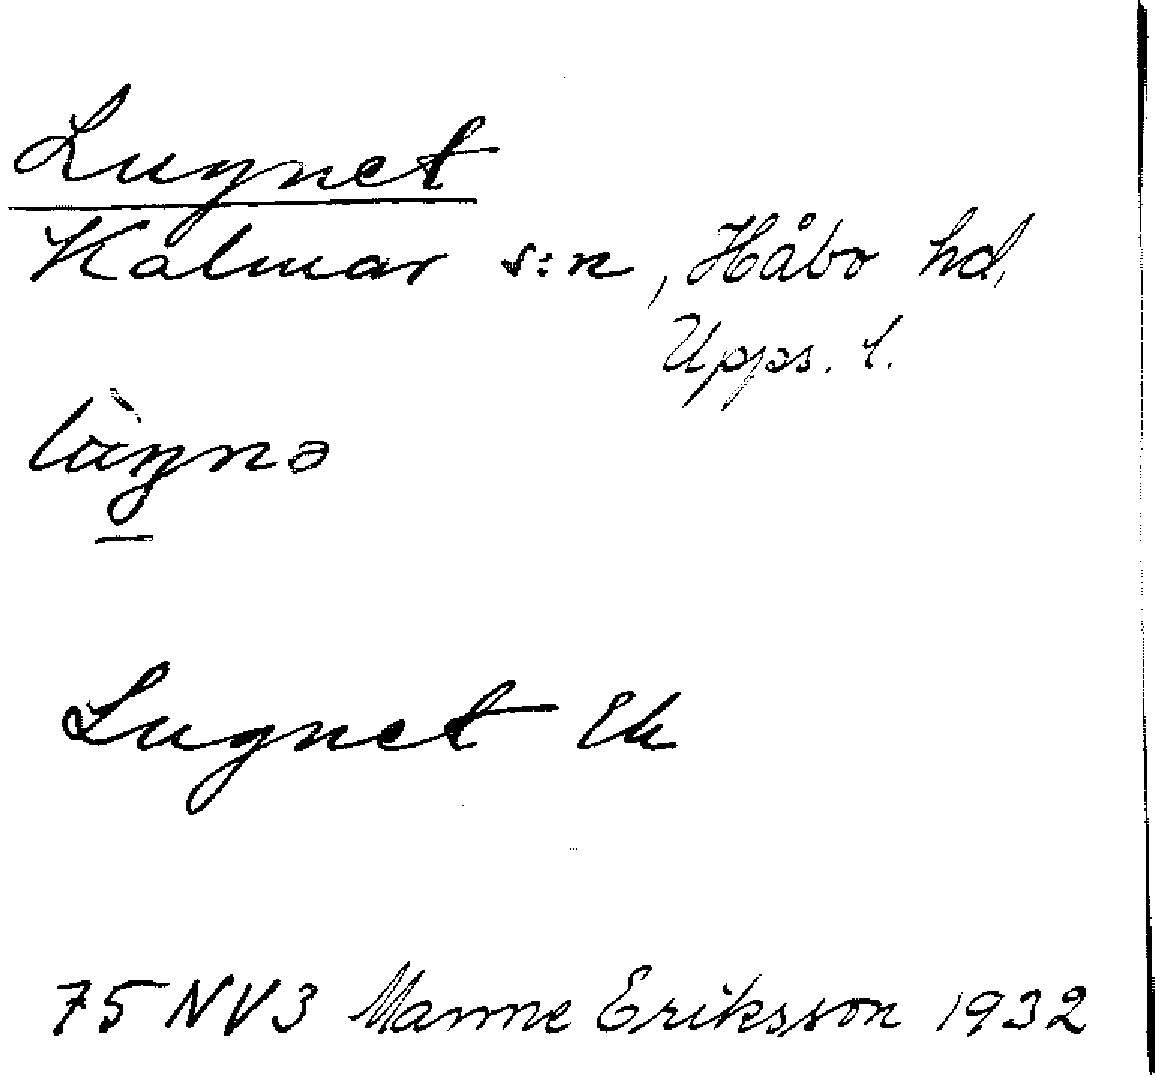 Lugnet
Kalmar s:n, Håbo hd,
Upps. l.
Lugnet Ek
75 NV3 Manne Eriksson 1932